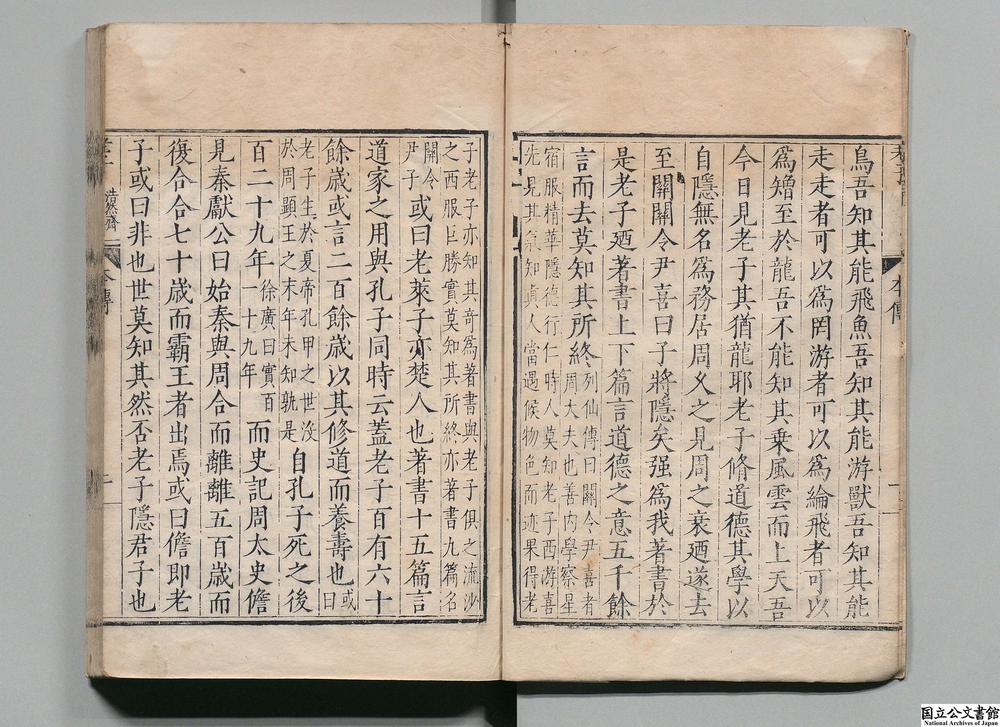 鳥吾知其能飛魚吾知其能游獸吾知其能
走走者可以爲罔游者可以爲綸飛者可以
爲矰至於龍吾不能知其乗風雲而上天吾
今日見老子其猶龍耶老子脩道德其學以
自隱無名爲務居周乆之見周之衰廼遂去
至關關令尹喜曰子將隱矣强爲我著書於
是老子廼著書上下篇言道德之意五千餘
言而去莫知其所終
列仙傳曰關令尹喜者
周大夫也善内學察星
宿服精華隱德行仁時人莫知老子西游喜
先見其氣知眞人當遇候物色而迹果得老
本傳
子老子亦知其奇爲著書與老子俱之流沙
之西服巨勝實莫知其所終亦著書九篇名
關令
尹子
或曰老萊子亦楚人也著書十五篇言
道家之用與孔子同時云蓋老子百有六十
餘歳或言二百餘歳以其修道而養壽也
或曰
老子生於夏帝孔甲之世没
於周顯王之末年未知孰是
自孔子死之後
百二十九年
徐廣曰實百
一十九年
而史記周太史儋
見秦獻公曰始秦與周合而離離五百歳而
復合合七十歳而霸王者出焉或曰儋即老
子或曰非也世莫知其然否老子隱君子也
浩然齋
本傳
国立公文書館
National Archives of Japan